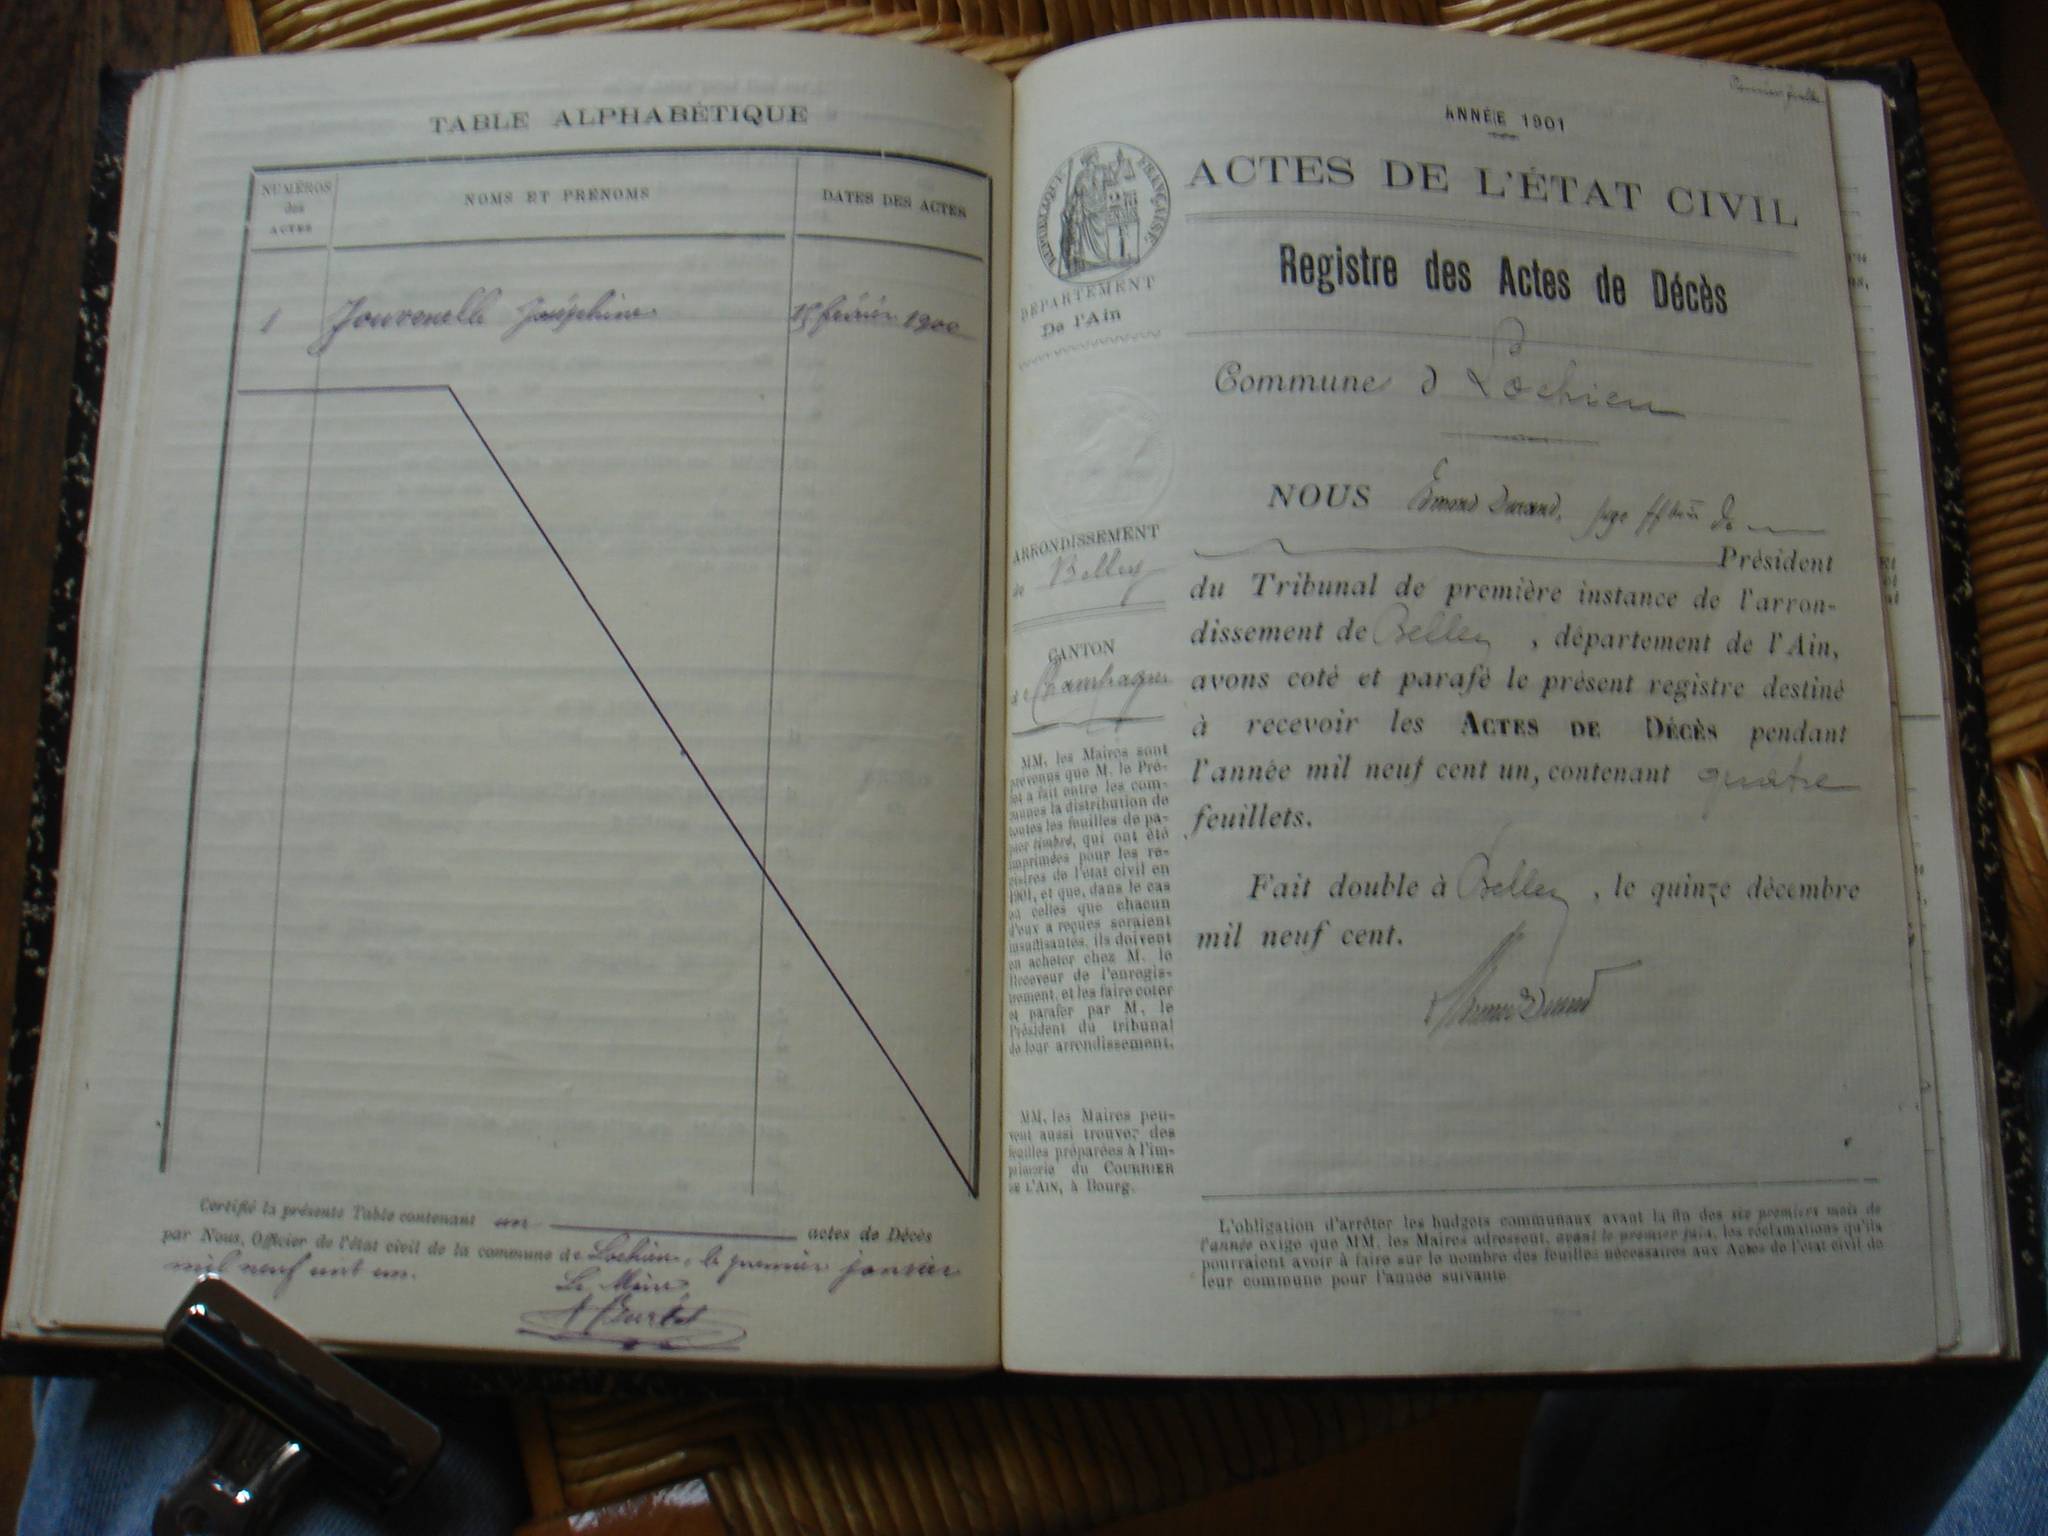 TABLE ALPHABÉTIQUE
NUMÉROS
des
ACTES
NOMS ET PRÉNOMS
DATES DES ACTES
1 Jouvenelle Joséphine 15 février 1900
Certifié la présente Table contenant un actes de Décès
par Nous, Officier de l'état civil de la commune de Lochieu, le premier janvier
mil neuf cent un.
Le Maire,
ANNÉE 1901
ACTES DE L'ÉTAT CIVIL
Registre des Actes de Décès
Commune d Lochieu
NOUS Edmond Durand, juge de
Président
du Tribunal de première instance de l'arron-
dissement de Belley, département de l'Ain,
avons coté et parafé le présent registre destiné
à recevoir les ACTES DE DÉCÈS pendant
l'année mil neuf cent un, contenant quatre
feuillets.
Fait double à Belley, le quinze décembre
mil neuf cent.
L'obligation d'arrêter les budgets communaux avant la fin des six premiers mois de
l'année exige que MM. les Maires adressent, avant le premier juin, les réclamations qu'ils
pourraient avoir à faire sur le nombre des feuilles nécessaires aux Actes de l'état civil de
leur commune pour l'année suivante
RÉPUBLIQUE FRANÇAISE
DÉPARTEMENT
De l'Ain
ARRONDISSEMENT
de Belley
CANTON
de Champagne
MM. les Maires sont
prévenus que M. le Pré-
fet a fait entre les com-
munes la distribution de
toutes les feuilles de pa-
pier timbré, qui ont été
imprimées pour les re-
gistres de l'état civil en
1901, et que, dans le cas
où celles que chacun
d'eux a reçues seraient
insuffisantes, ils doivent
en acheter chez M. le
Receveur de l'enregis-
trement, et les faire coter
et parafer par M. le
Président du tribunal
de leur arrondissement.
MM. les Maires peu-
vent aussi trouver des
feuilles préparées à l'im-
primerie du COURRIER
DE L'AIN, à Bourg.